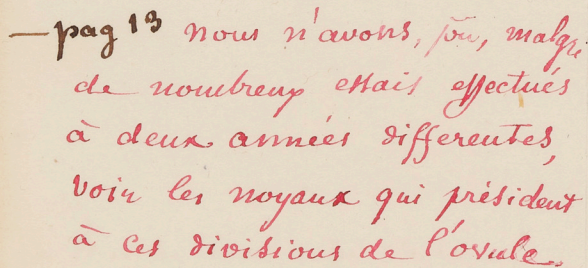 — pag 13 nous n'avons, pu, malgré
de nombreux essais effectués
à deux années differentes,
voir les noyaux qui président
à ces divisions de l'ovule.